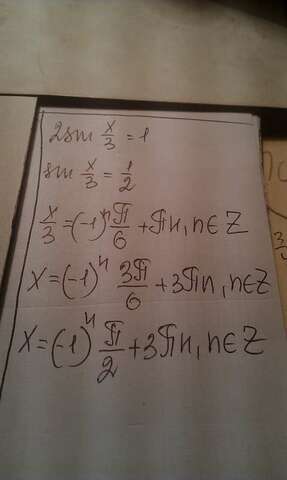 2sin x/3 = 1
sin x/3 = 1/2
x/3 = (-1)^n π/6 + πn, n ∈ Z
x = (-1)^n 3π/6 + 3πn, n ∈ Z
x = (-1)^n π/2 + 3πn, n ∈ Z